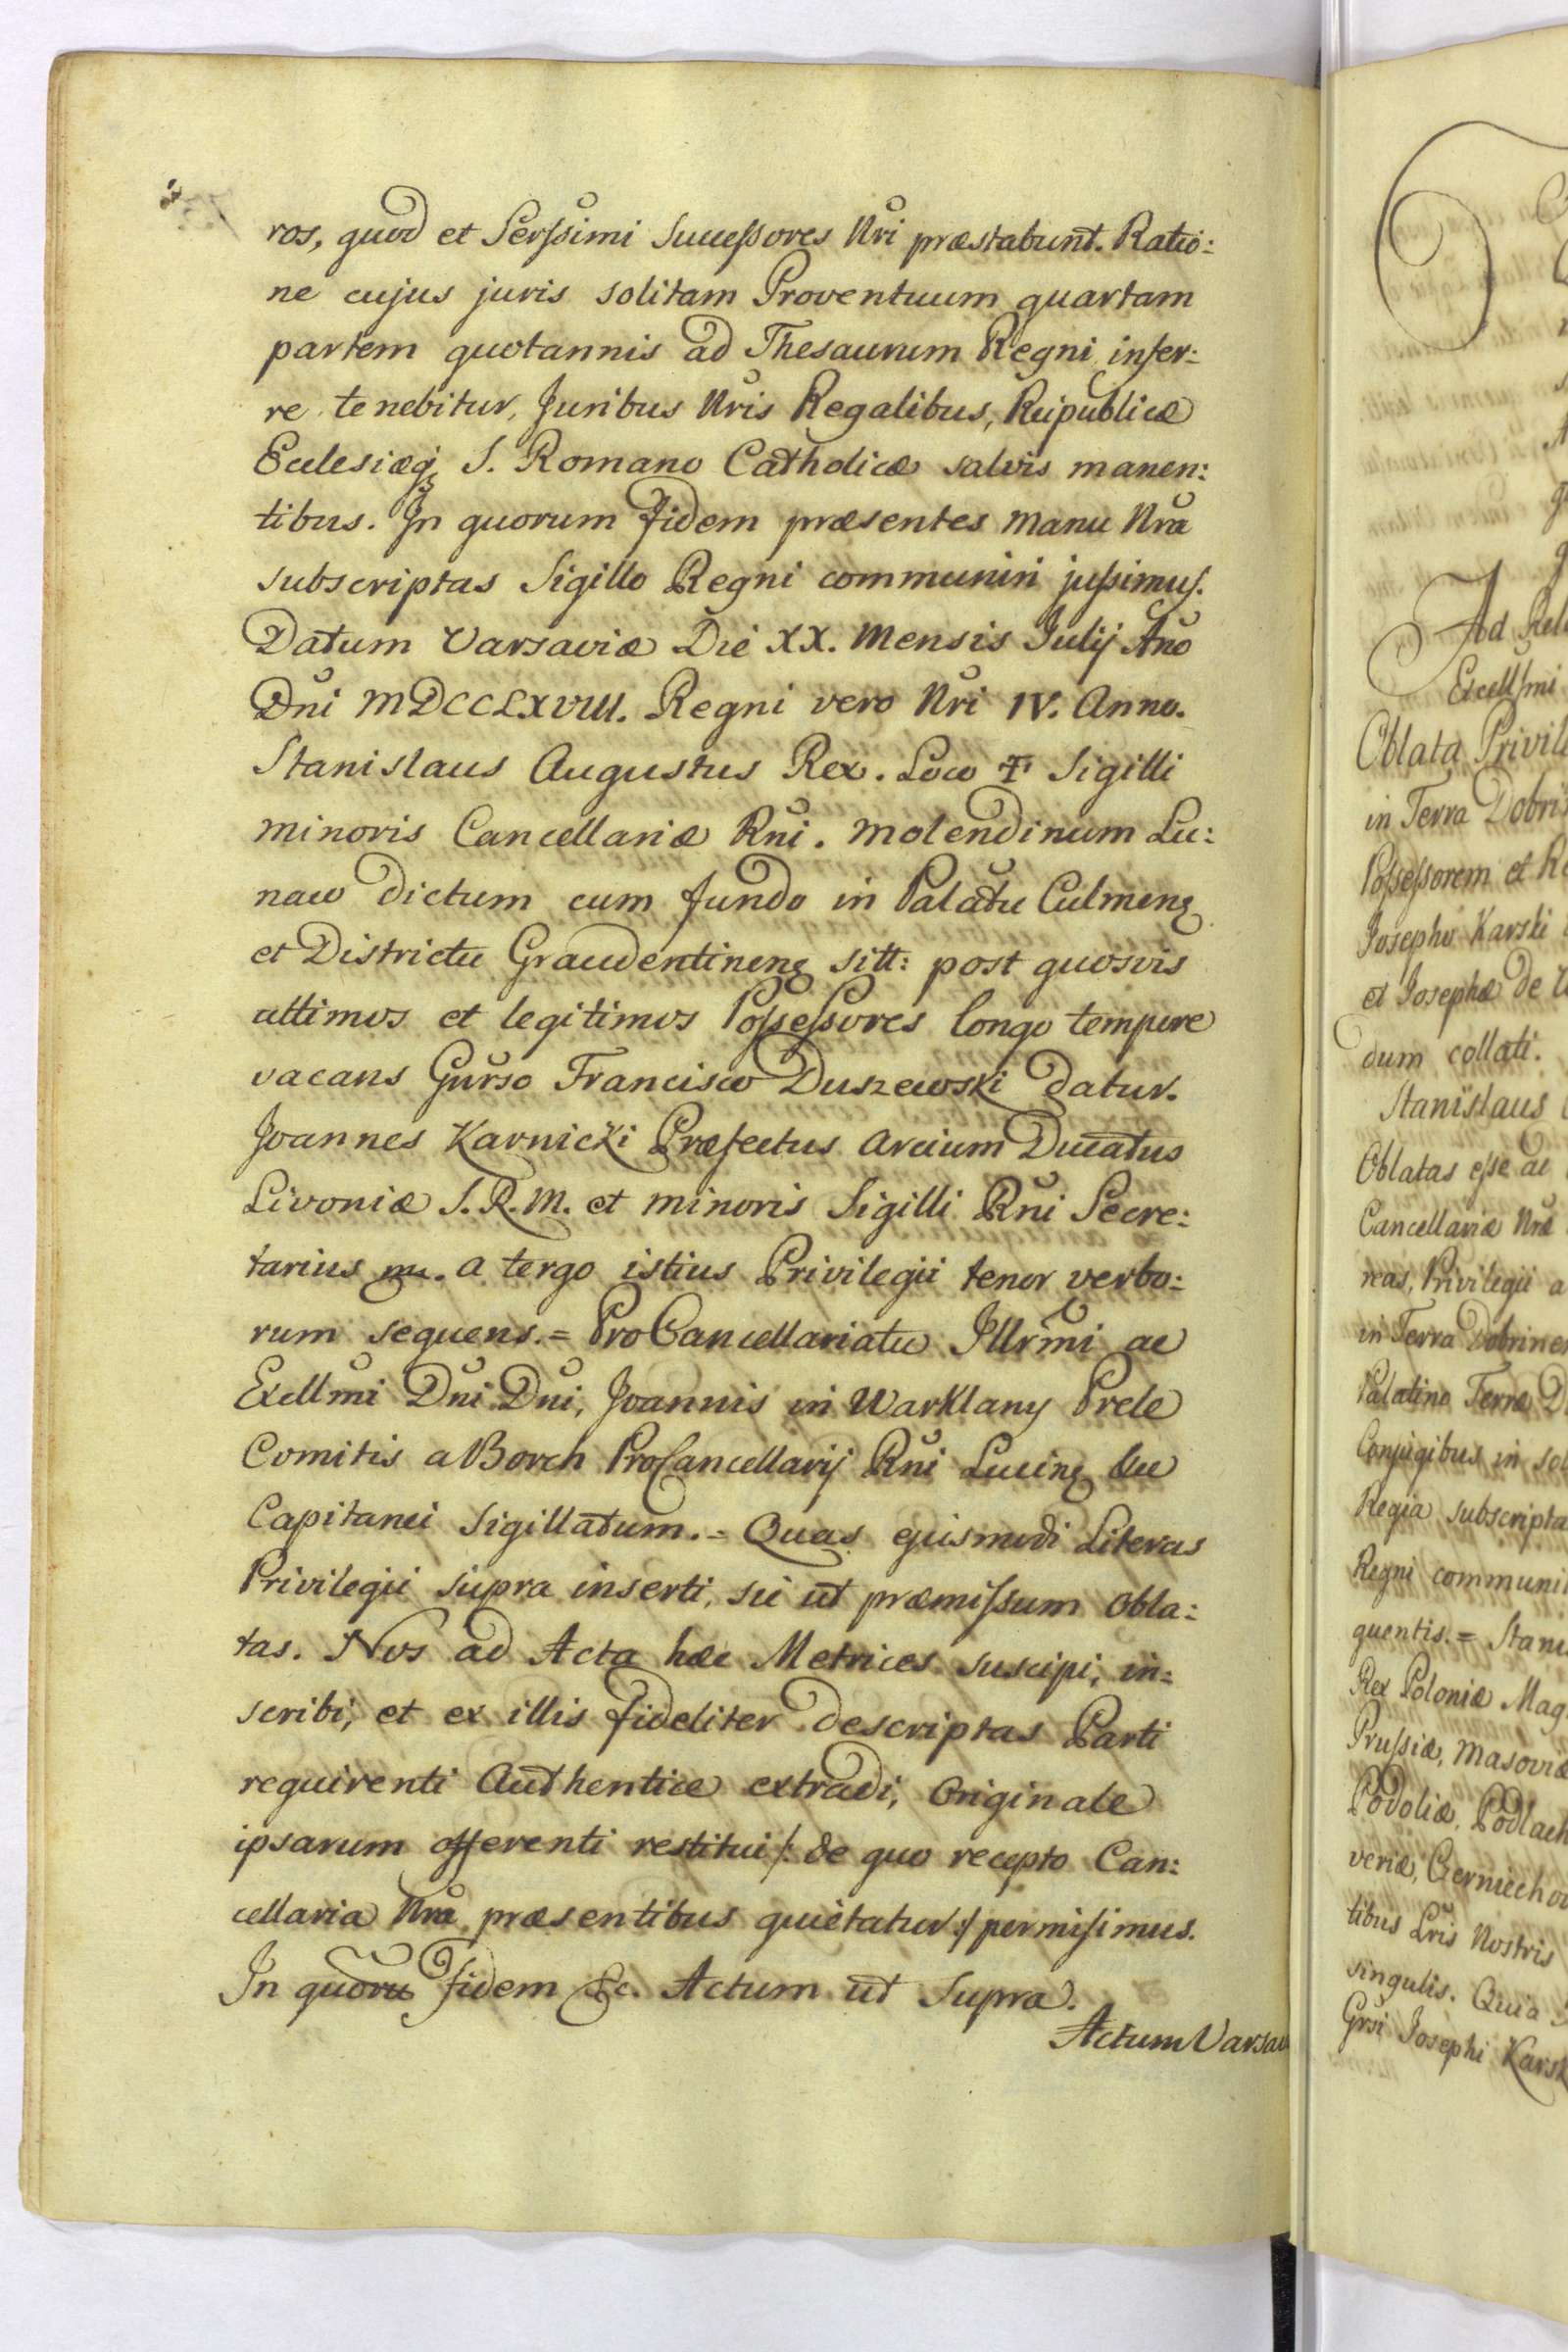 ros, quod et Serssimi Successores Nri præstabunt. Ratio:
ne cujus juris solitam Proventuum quartam
partem quotannis ad Thesaurum Regni infer:
re tenebitur, Juribus Nris Regalibus, Reipublicæ
Ecclesiæq; S. Romano Catholicæ salvis manen:
tibus. In quorum fidem præsentes manu Nra
subscriptas Sigillo Regni communiri jussimus.
Datum Varsaviæ Die XX. Mensis Julij Ano
Dni MDCCLXVIII. Regni vero Nri IV. Anno.
Stanislaus Augustus Rex. Loco ✝ Sigilli
minoris Cancellariæ Rni. Molendinum Lu:
naw dictum cum fundo in Palatu Culmens
et Districtu Graudentinens sitt: post quosvis
ultimos et legitimos Possessores longo tempore
vacans Gnrso Francisco Duszewski datur.
Joannes Karnicki Præfectus Arcium Ducatus
Livoniæ S.R.M. et minoris Sigilli Rni Secre:
tarius mu. a tergo istius Privilegii tenor verbo:
rum sequens.= ProCancellariatu Illrmi ac
Exellmi Dni Dni, Joannis in Warklany Prele
Comitis a Borch ProCancellarij Rni Lucins
Capitanei Sigillatum.= Quas ejusmodi Literas
Privilegii supra inserti, sic ut præmissum obla:
tas. Nos ad Acta hæc Metrices suscipi, in=
scribi, et ex illis fideliter descriptas Parti
requirenti Authentice extradi, Originale
ipsarum offerenti restitui /: de quo recepto Can:
cellaria Nra præsentibus quietatur :/ permisimus.
In quoru fidem &c. Actum ut Supra.
Actum Varsav
Ad Rel
Excellsmi
Oblata Privile
in Terra Dobri
Possessorem et Re
Josepho Karski
et Josephæ de
dum collati.
Stanislaus
Oblatas esse ac
Cancellariæ Nræ
reas, Privilegii a
in Terra Dobrinen
Palatino Terræ D
Conjugibus in sol
Regia subscripta
Regni communi
quentis.= Stani
Rex Poloniæ Mag
Prussiæ, Masoviæ
Podoliæ, Podlach
veriæ, Czerniechov
tibus Lris Nostris
singulis. Quia
Grsi Josephi Karsk